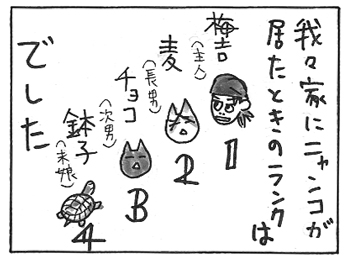 我々家にニャンコが
居たときのランクは
梅吉
(主人)
1
麦
(長男)
2
チョコ
(次男)
B
鉢子
(末娘)
4
でした